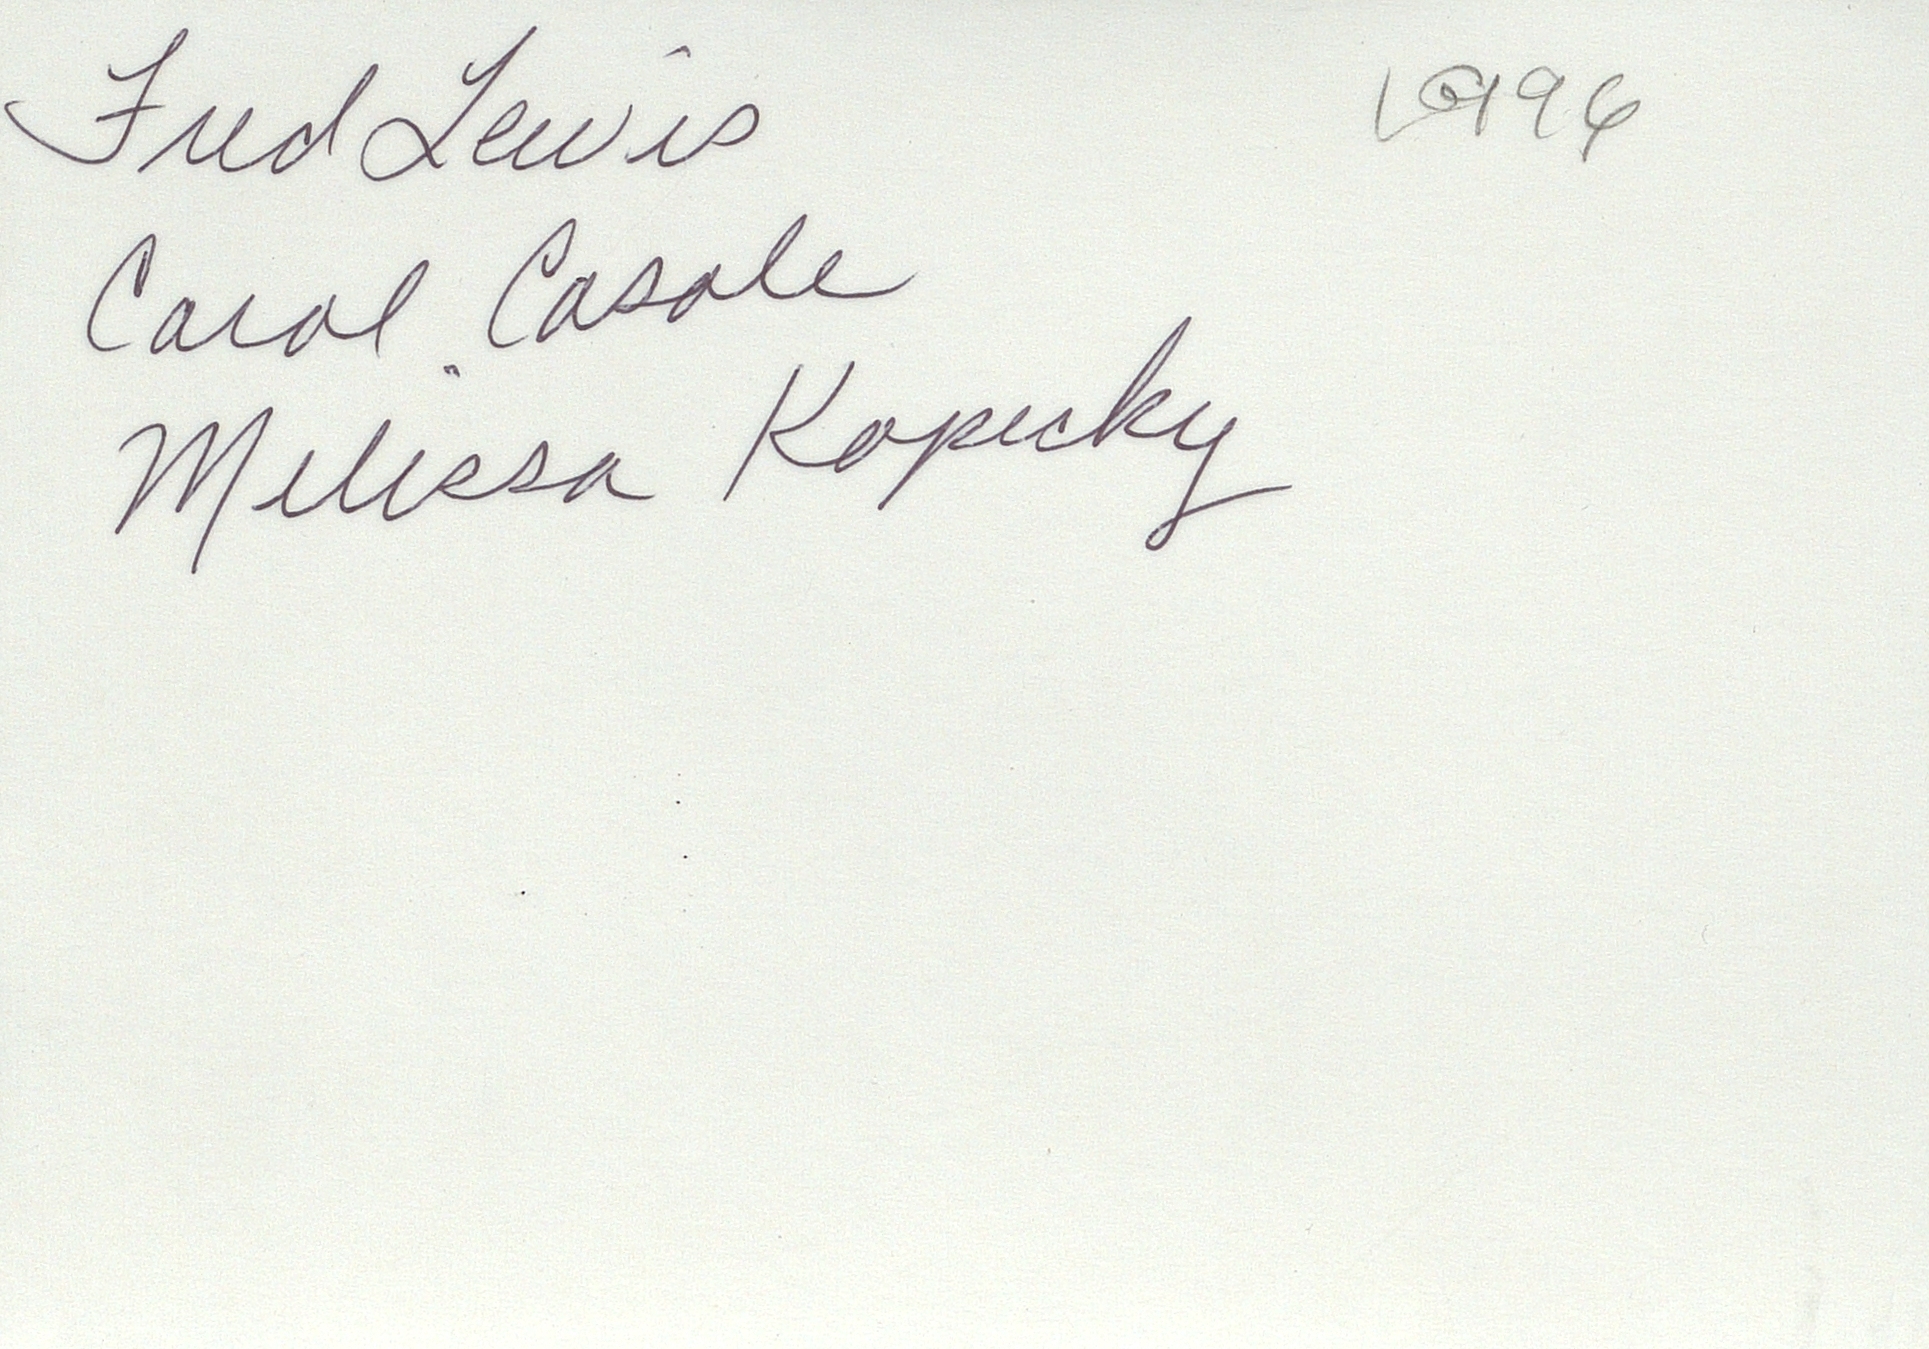 Fred Lewis
1996
Carol Casale
Melissa Kopecky